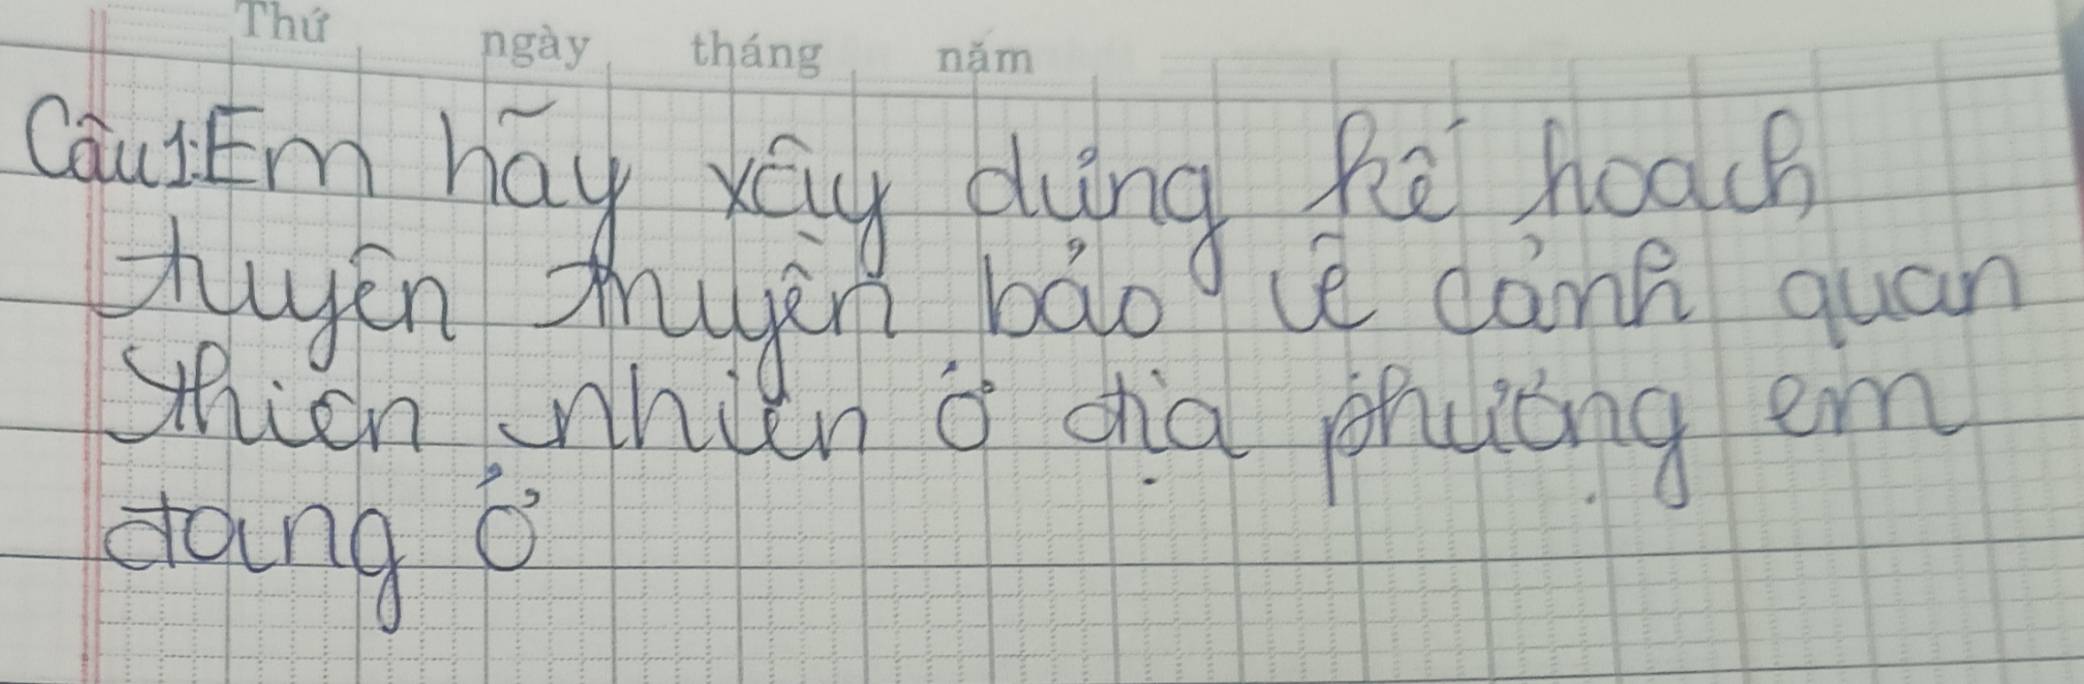 Thứ ngày tháng năm
Câu1:Em hãy xây dựng kế hoạch
truyên thuyền bảo vê cảnh quan
thiên nhiên ở địa phương em
đang ở